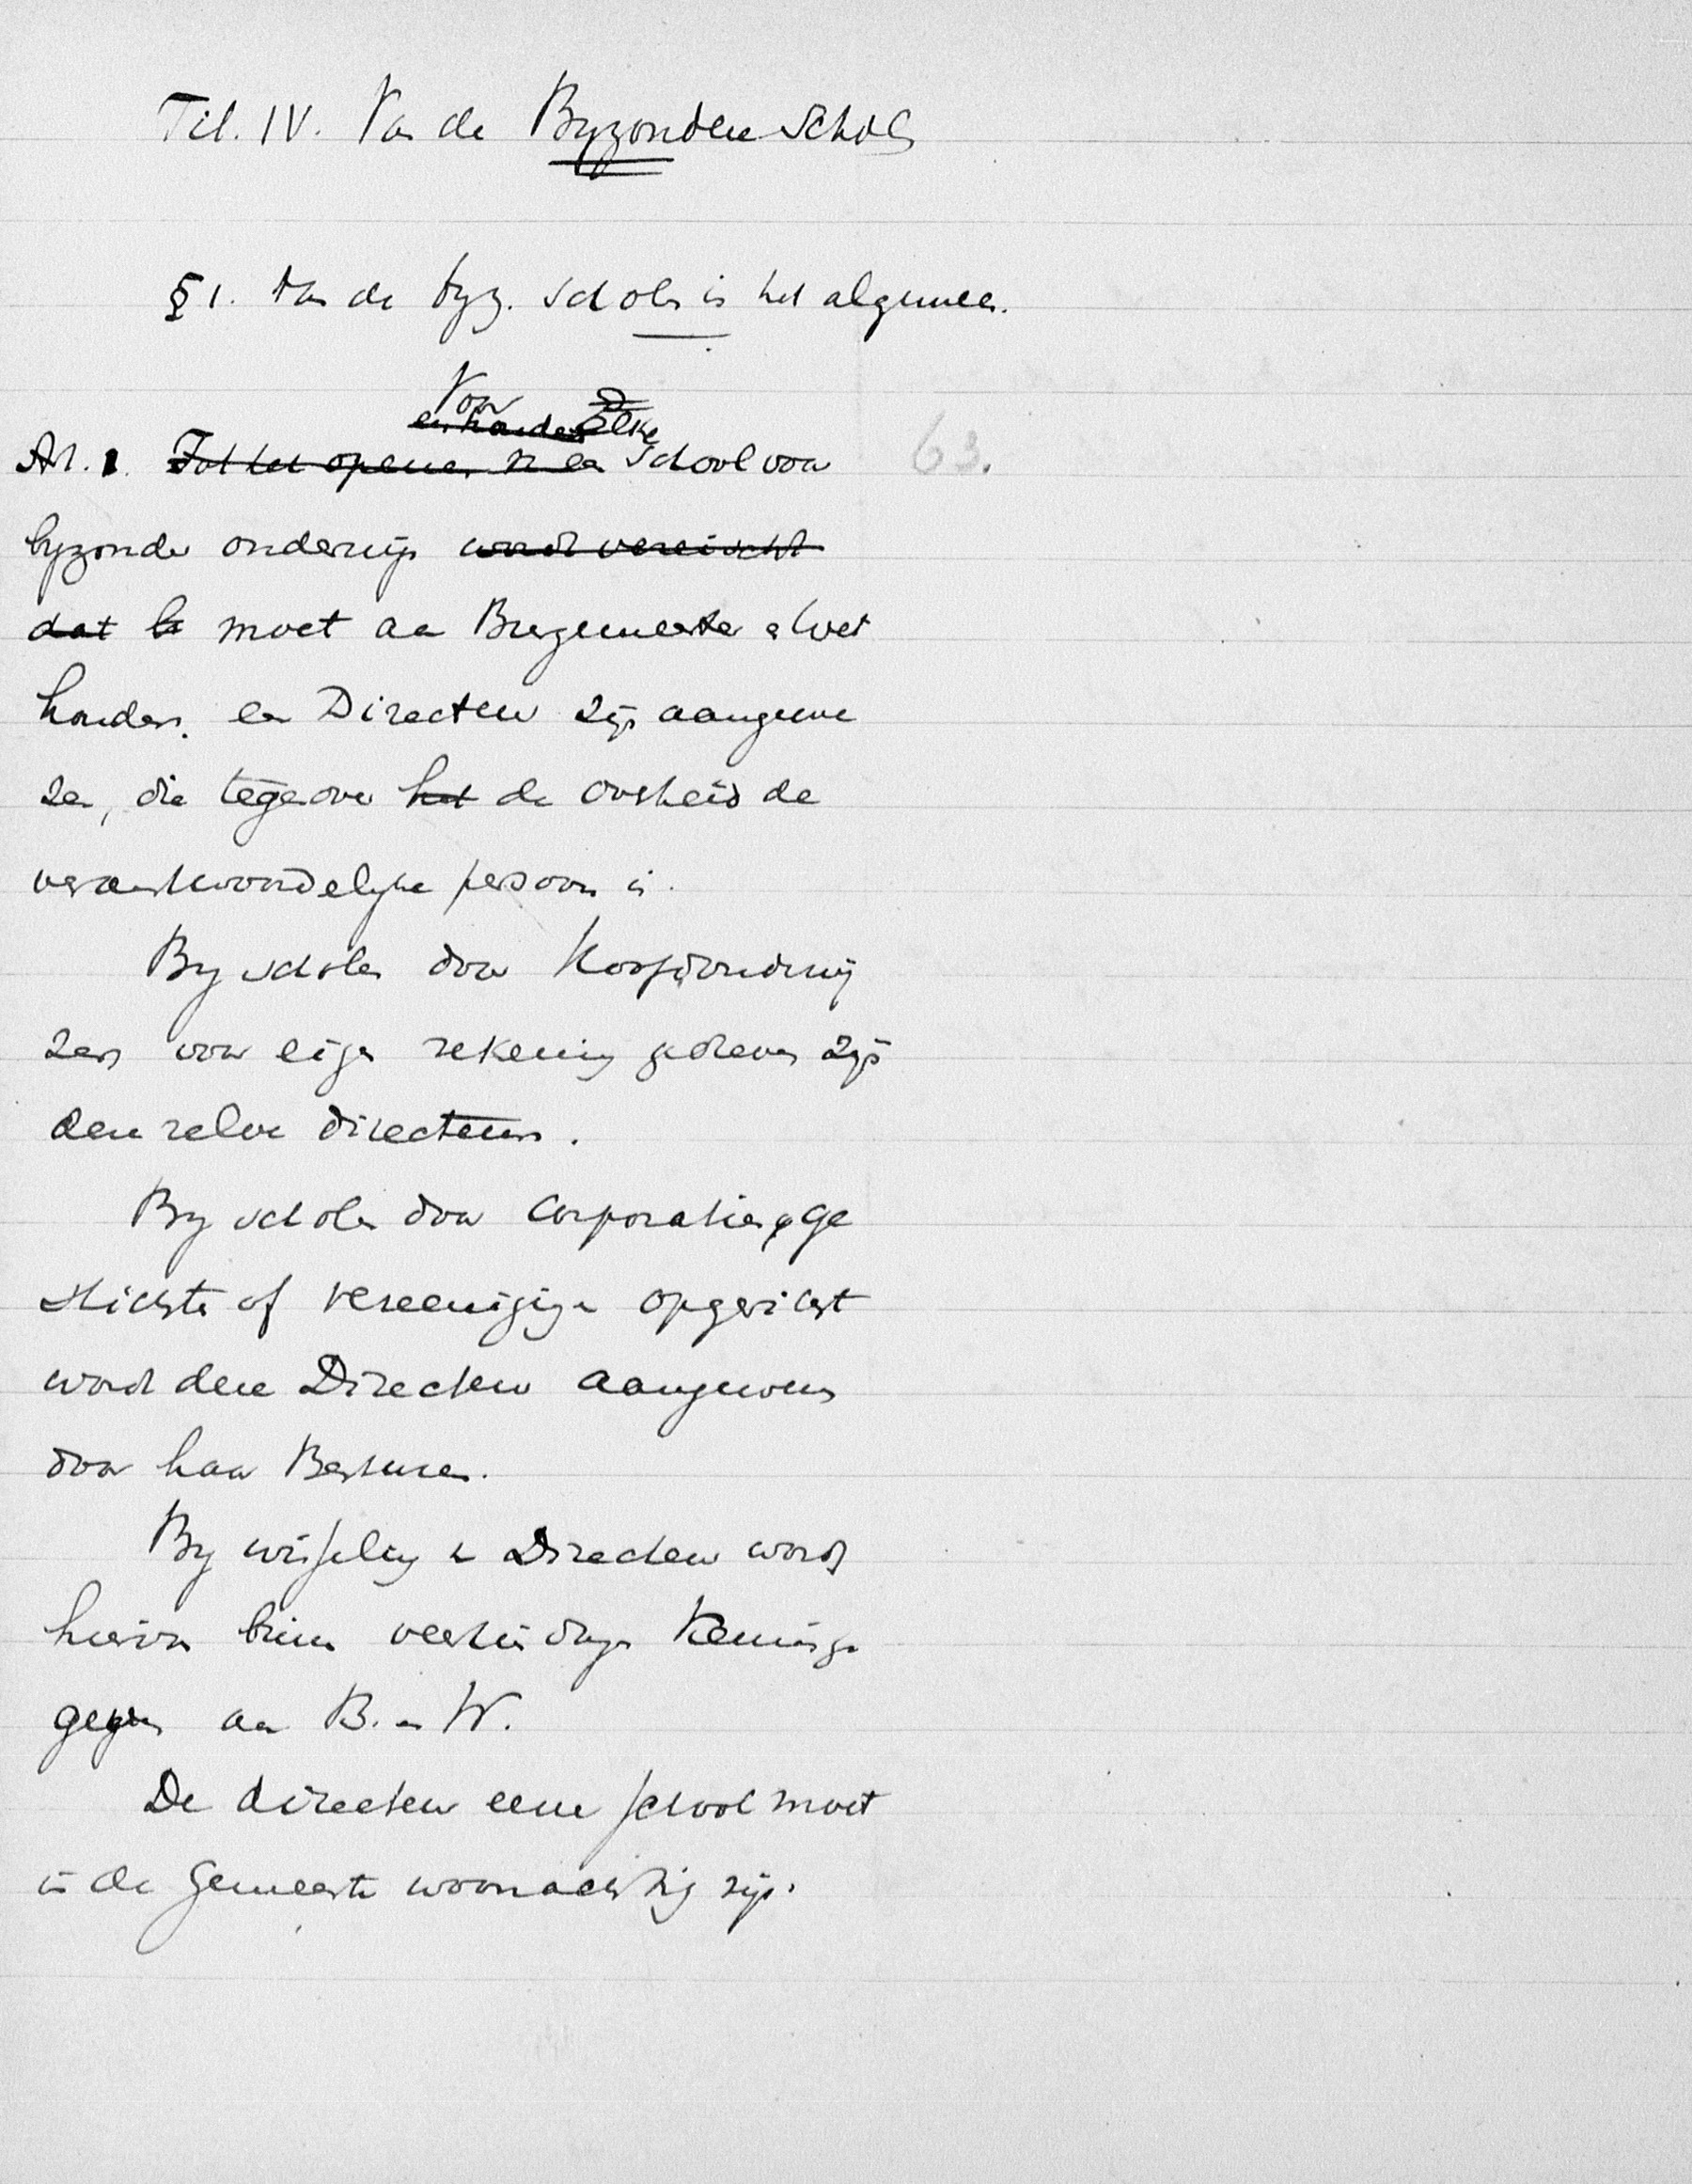 Tit. IV. Van de Byzondere Scholen
§ 1. Van de byz. scholen in het algemeen.
Voor
en houden Elke
Art. 1. Tot het openen v. een School voor 63.
byzonder onderwijs wordt vereischt
dat b moet aan Burgemeester en Wet
houders een Directeur zijn aangewe
zen, die tegenover het de Overheid de
verantwoordelyke persoon is.
By scholen door Hoofdonderwij
zers voor eigen rekening gedreven zijn
deze zelve directeuren.
By scholen door Corporatien, Ge
stichten of vereenigingen opgericht
wordt deze Directeur aangewezen
door haar Besturen.
By wisseling v Directeur wordt
hiervan binnen veertien dagen Kennis ge
geven aan B. en W.
De directeur eener school moet
in de Gemeente woonachtig zijn.